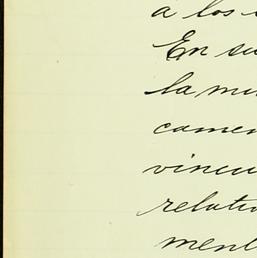 á los
En su
la mu
camen
vincu
relativ
ment